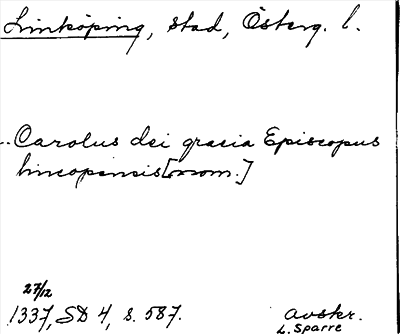 Linköping, stad, Österg. l.
..Carolus dei gracia Episcopus
lincopensis[nom.]
27/12
1337, SD 4, s. 587.
avskr.
L. Sparre